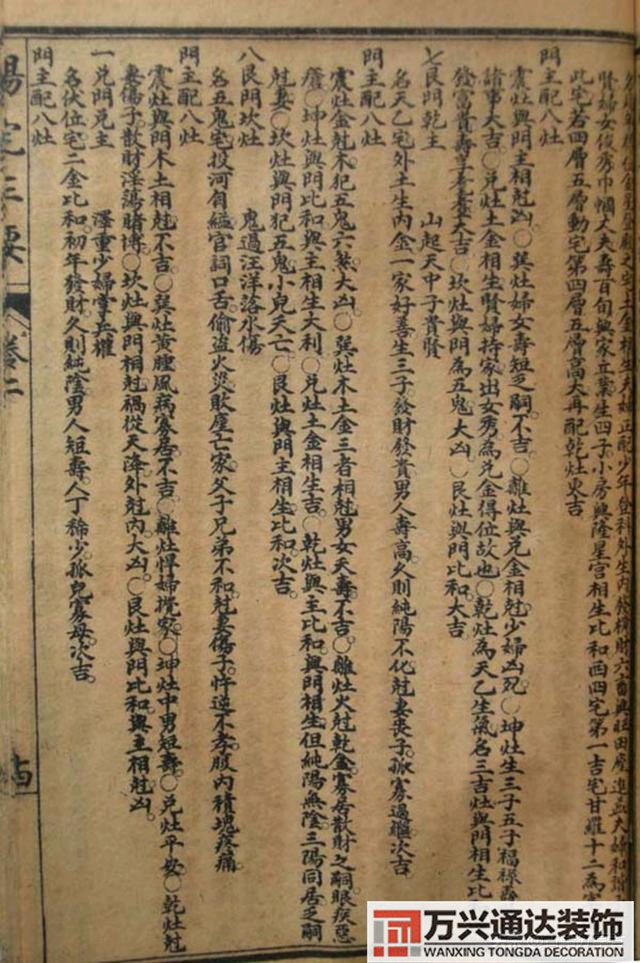 賢婦女俊秀巾幗丈夫壽百旬興家立業生四子小房興隆星宮相生比和西四宅第一吉宅甘羅十二為宰
此宅若四層五層動宅第四層五層高大再配乾灶更吉
門主配八灶
震灶與門主相尅凶○巽灶婦女壽短乏嗣不吉○離灶與兌金相尅少婦凶死○坤灶生三子五子福祿壽
諸事大吉○兌灶土金相生賢婦持家出女秀為兌金得位故也○乾灶為天乙生氣名三吉灶與門相生比
發富貴壽大吉○坎灶與門為五鬼大凶○艮灶與門比和大吉
七艮門乾主 山起天中子貴賢
名天乙宅外土生內金一家好善生三子發財發貴男人壽高久則純陽不化尅妻喪子孤寡過繼次吉
門主配八灶
震灶金尅木犯五鬼六煞大凶○巽灶木土金三者相尅男女夭壽不吉○離灶火尅乾金寡居散財乏嗣眼疾惡
瘡○坤灶與門比和與主相生大利○兌灶土金相生吉○乾灶與主比和與門相生但純陽無陰三陽同居乏嗣
尅妻○坎灶與門犯五鬼小兒夭亡○艮灶與門主相生比和次吉
八艮門坎灶 鬼過汪洋落水傷
名五鬼宅投河自縊官詞口舌偷盜火災敗屋亡家父子兄弟不和尅妻傷子忤逆不孝股內積塊疼痛
門主配八灶
震灶與門木土相尅不吉○巽灶黃腫風病寡居不吉○離灶悍婦攪家○坤灶中男短壽○兌灶平安○乾灶尅
妻傷子散財淫蕩賭博○坎灶與門相尅禍從天降外尅內大凶○艮灶與門比和與主相尅凶
一兌門兌主 澤重少婦掌兵權
名伏位宅二金比和初年發財久則純陰男人短壽人丁稀少孤兒寡母次吉
門主配八灶
陽宅三要 卷二 十四
万兴通达装饰
WANXING TONGDA DECORATION